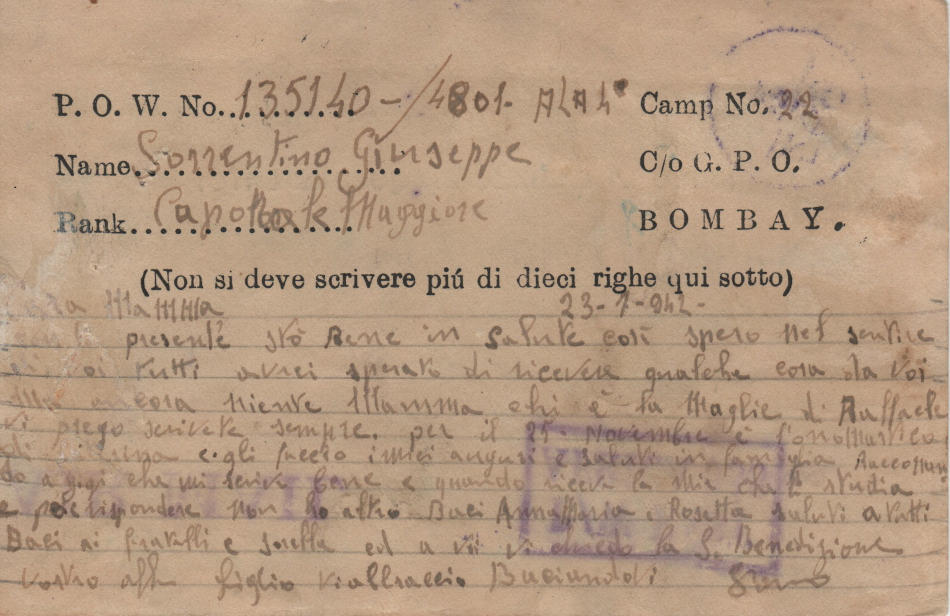 P. O. W. No. 135140 - / 4801. ALA 4° Camp No. 22
Name Sorrentino Giuseppe C/o G. P. O.
Rank Caporale Maggiore BOMBAY.
(Non si deve scrivere piú di dieci righe qui sotto)
Mamma 23-1-942-
presente stò Bene in salute così spero nel sentire
di voi tutti avrei sperato di ricevere qualche cosa da voi
ancora niente Mamma chi è la Moglie di Raffaele
vi prego scrivete sempre. per il 25. Novembre è l'onomastico
di e gli faccio i miei auguri e saluti in famiglia Raccoman
do a gigi che mi scrive bene e quando riceve la mia che studia
e poi rispondere non ho altro Baci Annamaria e Rosetta saluti a tutti
Baci ai fratelli e sorella ed a voi vi chiedo la S. Benedizione
vostro aff figlio vi abbraccio Baciandovi